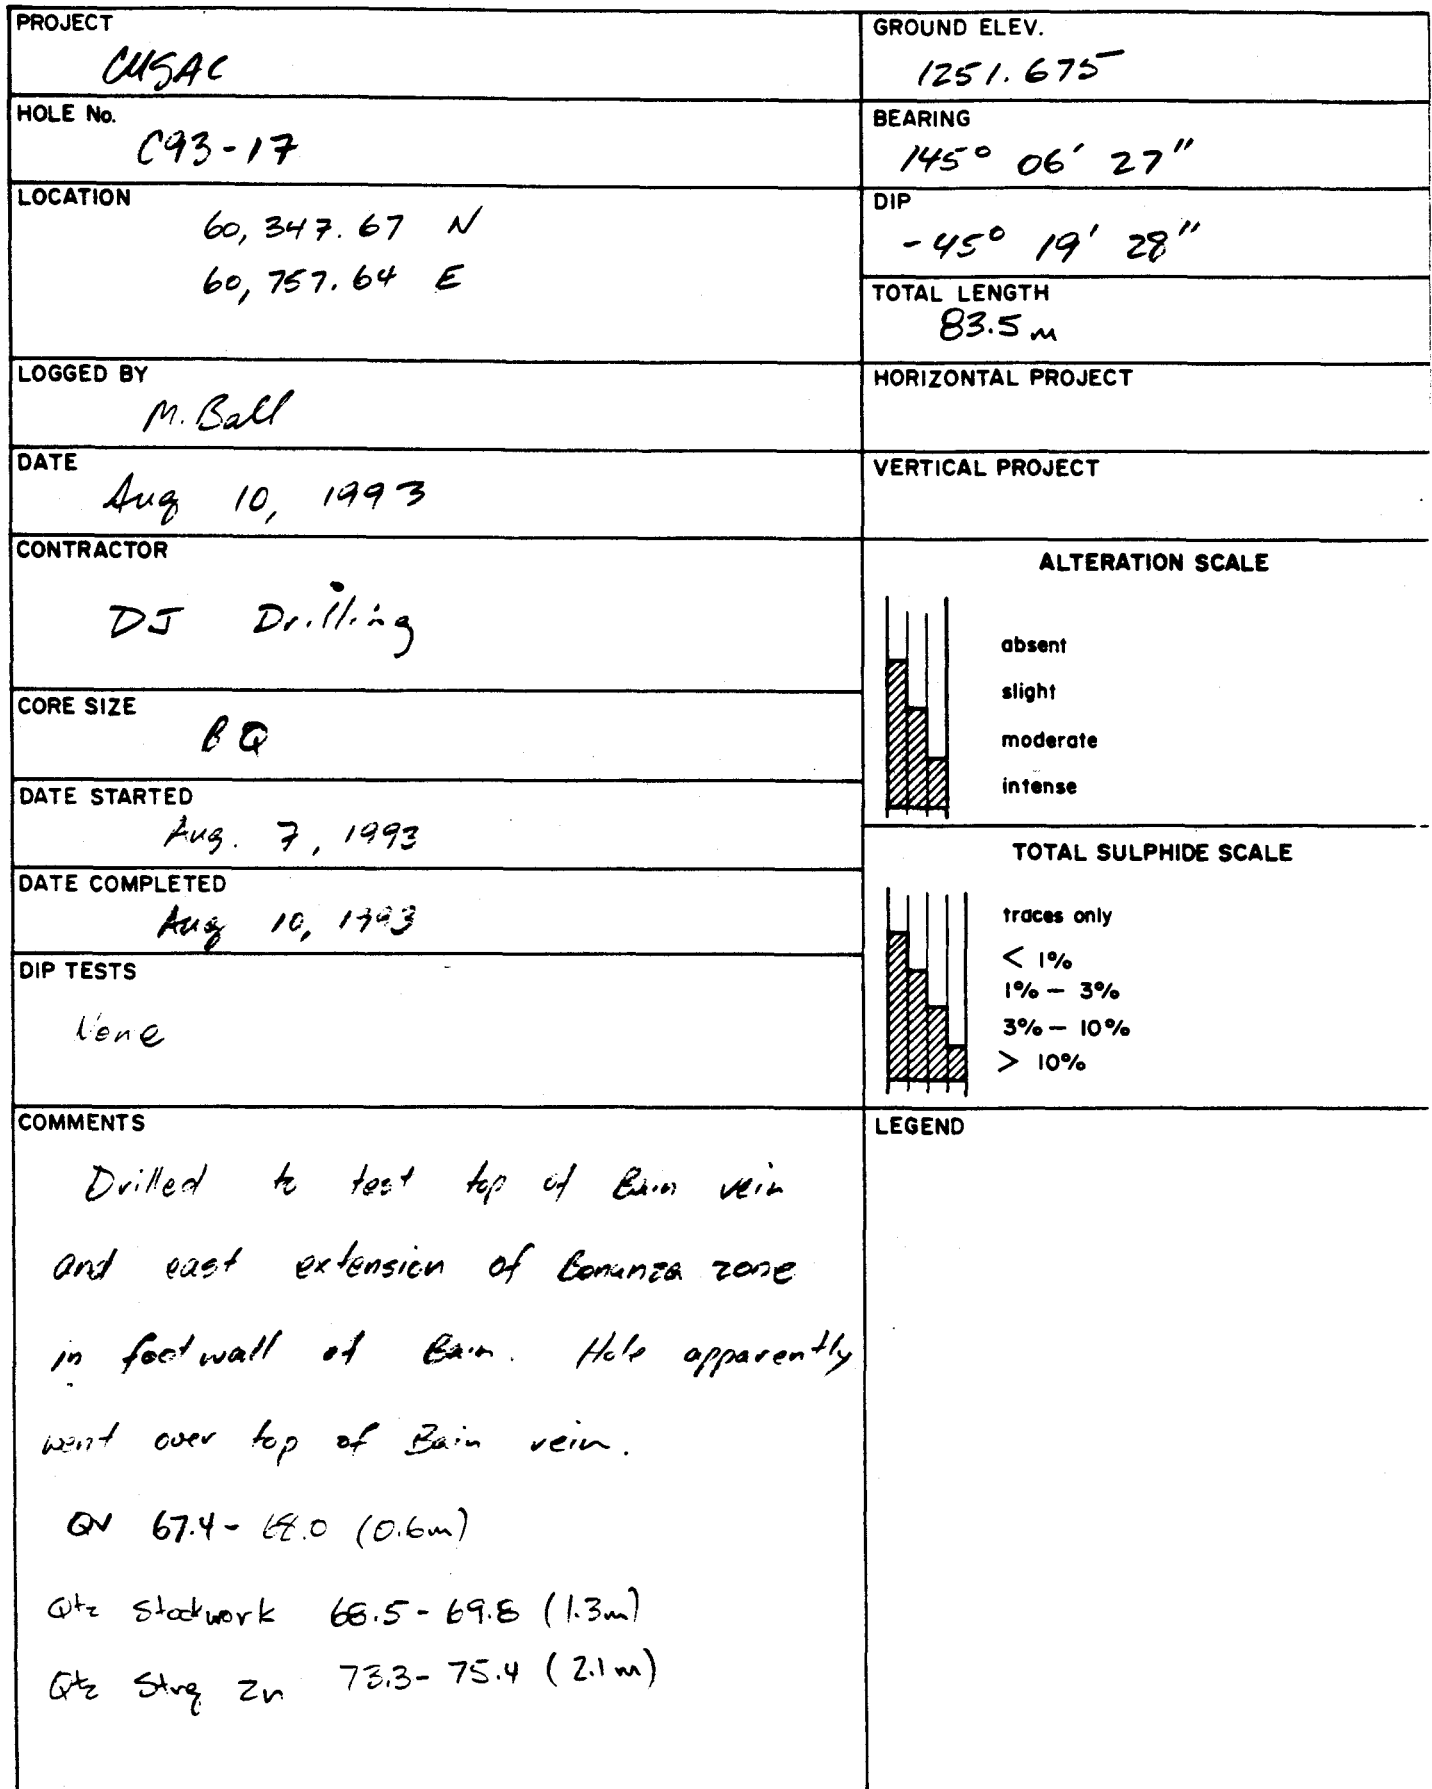 PROJECT
CUSAC
HOLE No.
C93-17
LOCATION
60,347.67 N
60,757.64 E
LOGGED BY
M. Ball
DATE
Aug 10, 1993
CONTRACTOR
DJ Drilling
CORE SIZE
BQ
DATE STARTED
Aug. 7, 1993
DATE COMPLETED
Aug 10, 1993
DIP TESTS
None
COMMENTS
Drilled to test top of Bain vein
and east extension of Bonanza zone
in footwall of Bain. Hole apparently
went over top of Bain vein.
QV 67.4 - 68.0 (0.6m)
Qtz Stockwork 68.5 - 69.8 (1.3m)
Qtz Strg Zn 73.3 - 75.4 (2.1m)
GROUND ELEV.
1251.675
BEARING
145° 06' 27"
DIP
-45° 19' 28"
TOTAL LENGTH
83.5 m
HORIZONTAL PROJECT
VERTICAL PROJECT
ALTERATION SCALE
absent
slight
moderate
intense
TOTAL SULPHIDE SCALE
traces only
< 1%
1% - 3%
3% - 10%
> 10%
LEGEND